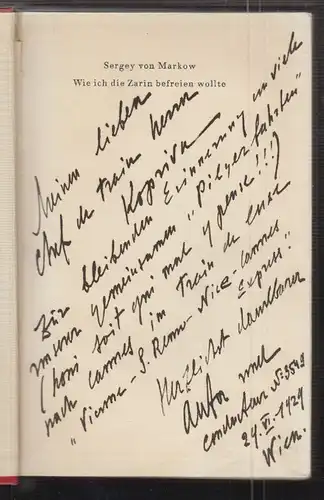 Sergey von Markow
Wie ich die Zarin befreien wollte
Meinem lieben
Chef de train Herrn
Kopriva
Zur bleibenden Erinnerung an viele
unserer gemeinsamen "Pilgerfahrten"
(honi soit qui mal y pense!!!)
nach Cannes im Train de luxe
"Vienne-S.Remo-Nice-Cannes
Express."
Herzlichst dankbarer
Autor und
conducteur No 3549
29.VI.1929
Wien.